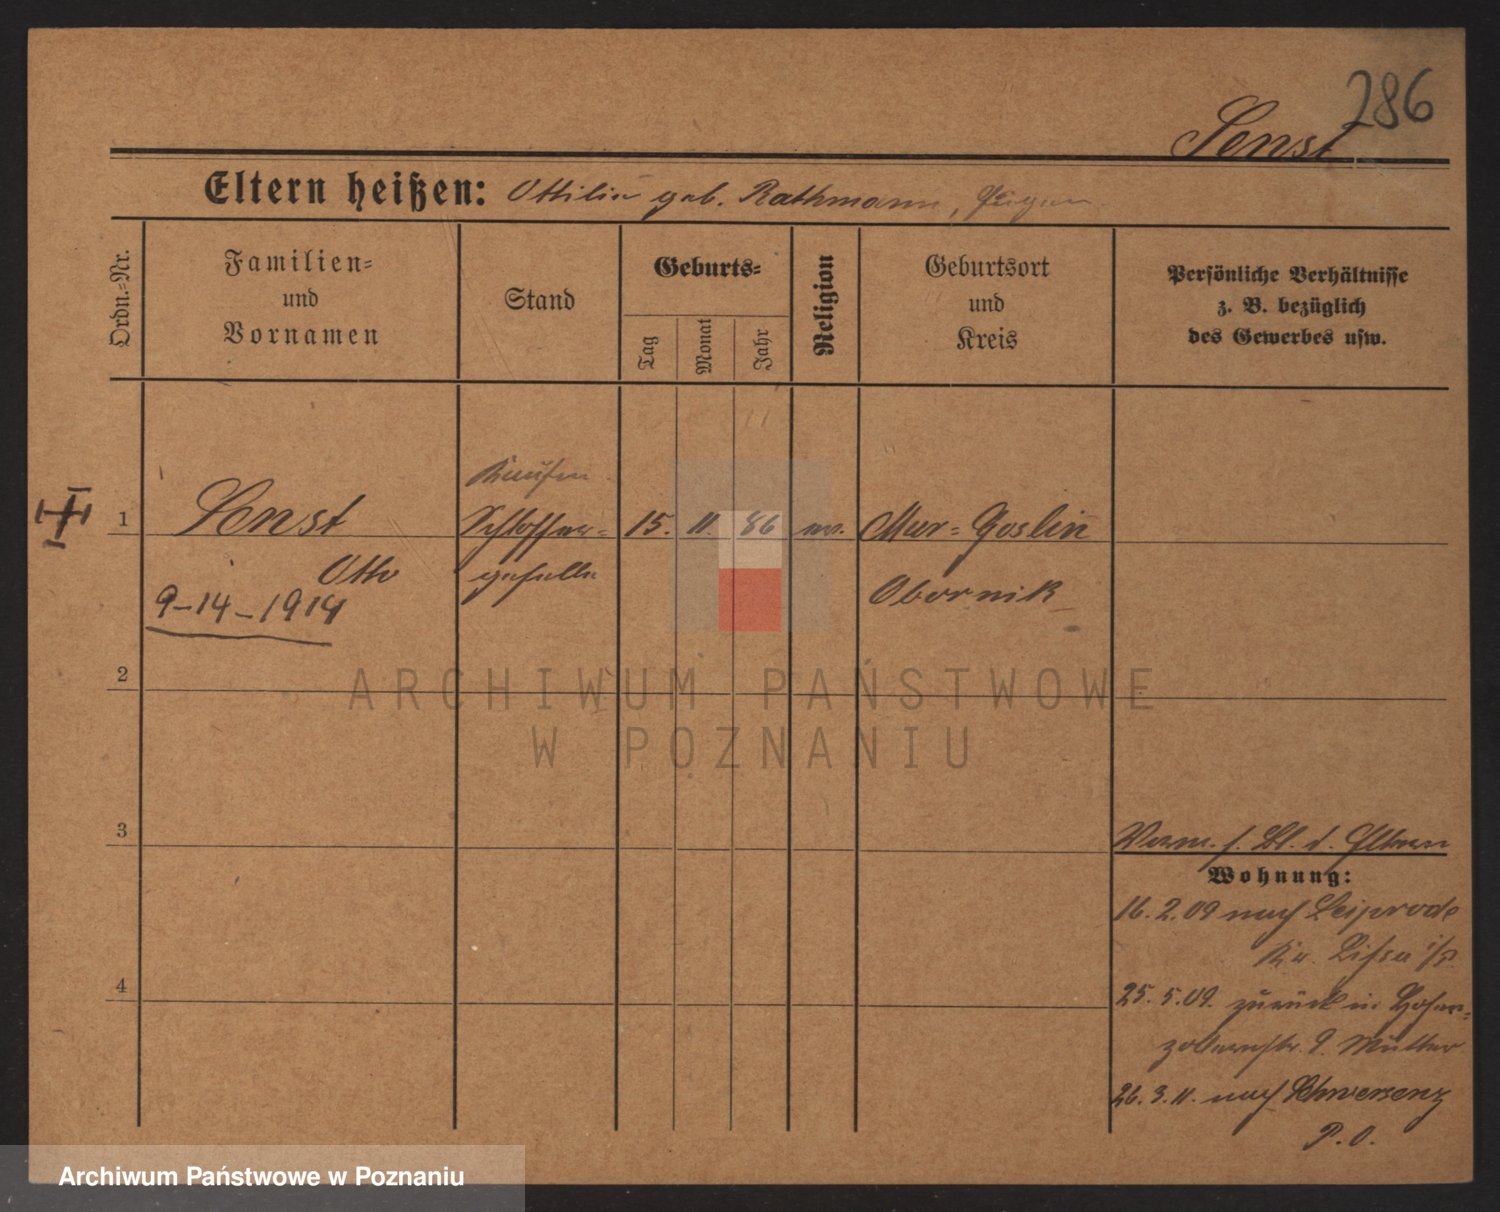 286
Senst
Eltern heißen: Ottilie geb. Rathmann,
Ordn.-Nr.
Familien-
und
Vornamen
Stand
Geburts-
Tag
Monat
Jahr
Religion
Geburtsort
und
Kreis
Persönliche Verhältnisse
z. B. bezüglich
des Gewerbes usw.
1
Senst
Otto
9-14-1914
Schlosser-
geselle
15. 11. 86 ev. Mur-Goslin
Obornik
2
3
4
Verm. s. Bl. d. Eltern
Wohnung:
16.2.09 nach Leiperode
Kr. Lissa i/P.
25.5.09. zurück in Hohen-
zollernstr. 9. Mutter
26.3.11. nach Schwersenz
P.O.
ARCHIWUM PAŃSTWOWE
W POZNANIU
Archiwum Państwowe w Poznaniu